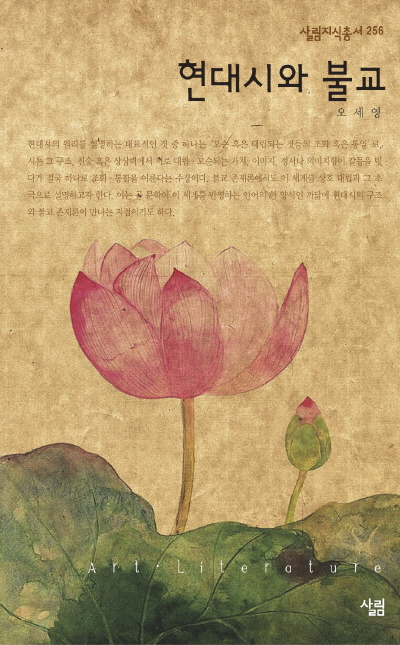 살림지식총서 256
현대시와 불교
오세영
현대시의 원리를 설명하는 대표적인 것 중 하나는 '모순 혹은 대립되는 것들의 조화 혹은 통일' 로,
시등 그 구조, 진술 혹은 상상력에서 서로 대립·모순되는 가치, 이미지, 정서나 의미지향이 갈등을 빚
다가 결국 하나로 조화·통합을 이룬다는 주장이다. 불교 존재론에서도 이 세계를 상호 대립과 그 초
극으로 설명하고자 한다. 이는 곧 문학이 이 세계를 반영하는 언어의 한 양식인 까닭에 현대시의 구조
와 불교 존재론이 만나는 지점이기도 하다.
Art·Literature
살림